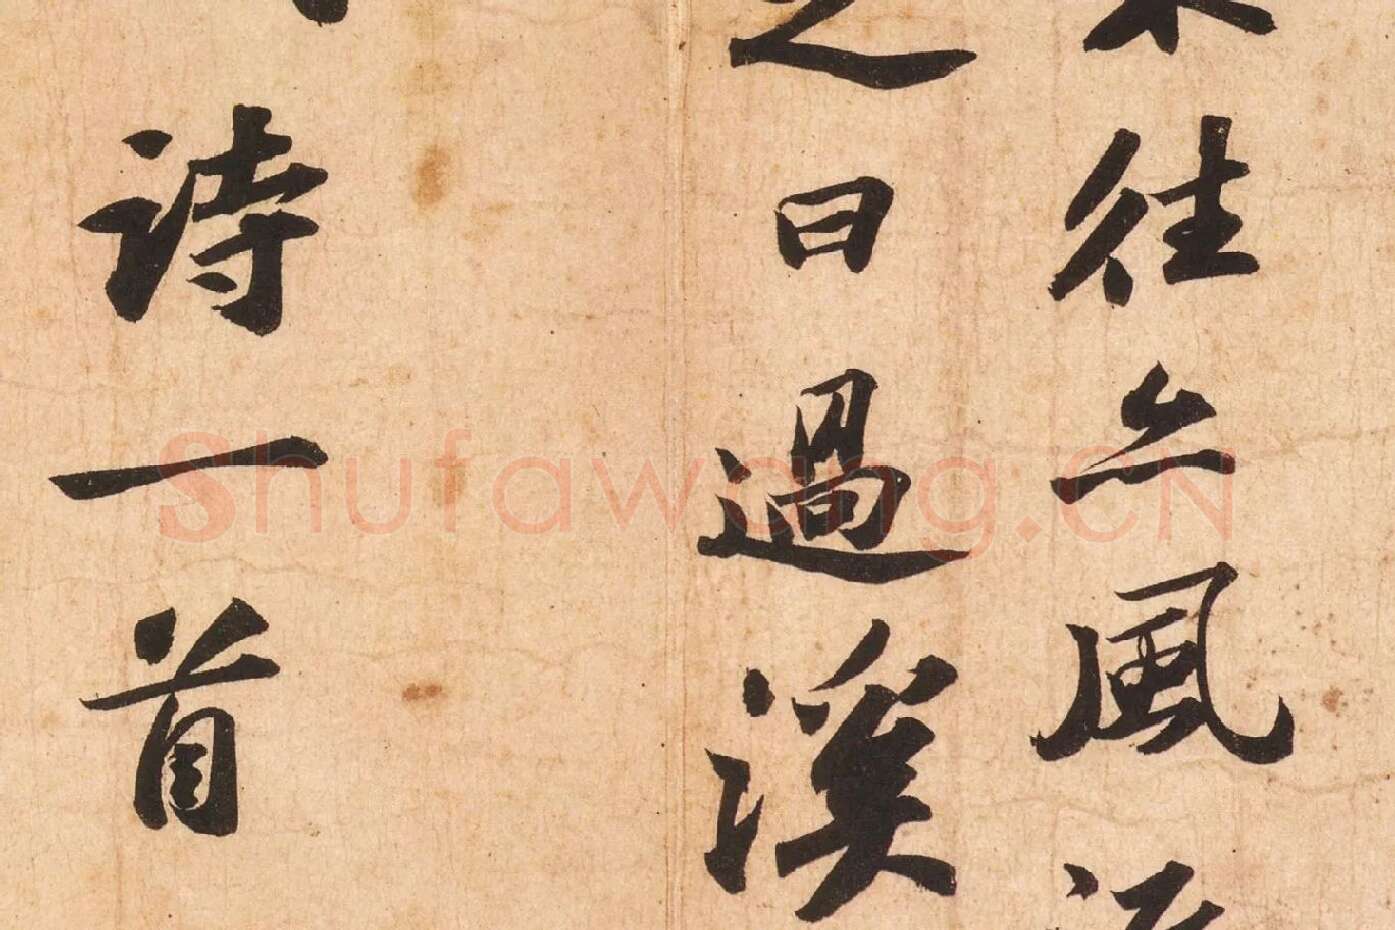 往亦風
之曰過溪
詩一首
Shufawang.CN